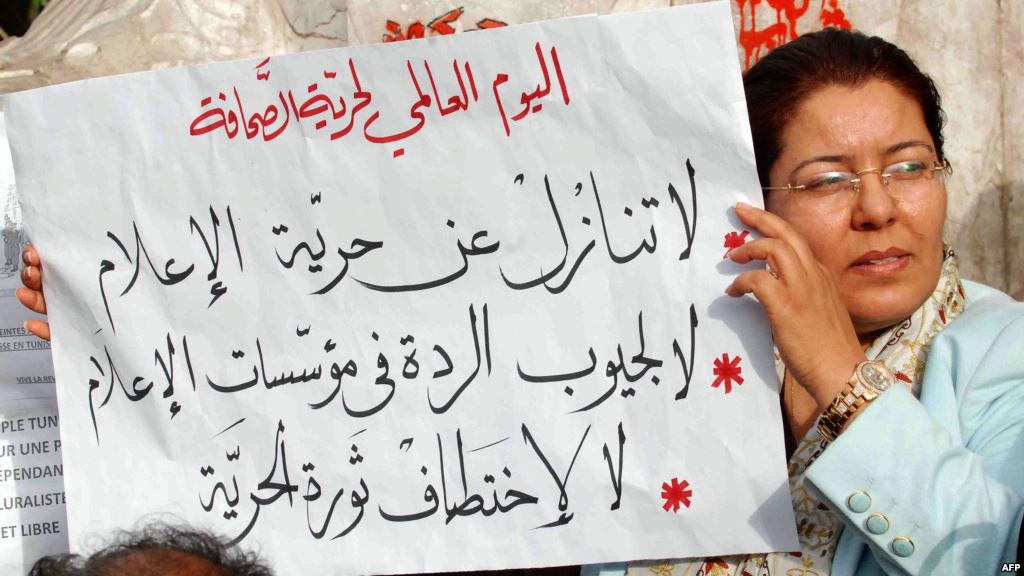 اليوم العالمي لحريّة الصَّحافة
* لا تنازُلْ عن حريّة الإعلام
* لا لجيوب الردة في مؤسّسات الإعلامَ
* لا لإختَطافْ ثَورة الحريَّة
EINTES
SSE EN TUNIS
VIVE LA REV
PLE TUN
UR UNE P
ÉPENDAN
LURALISTE
ET LIBRE
AFP